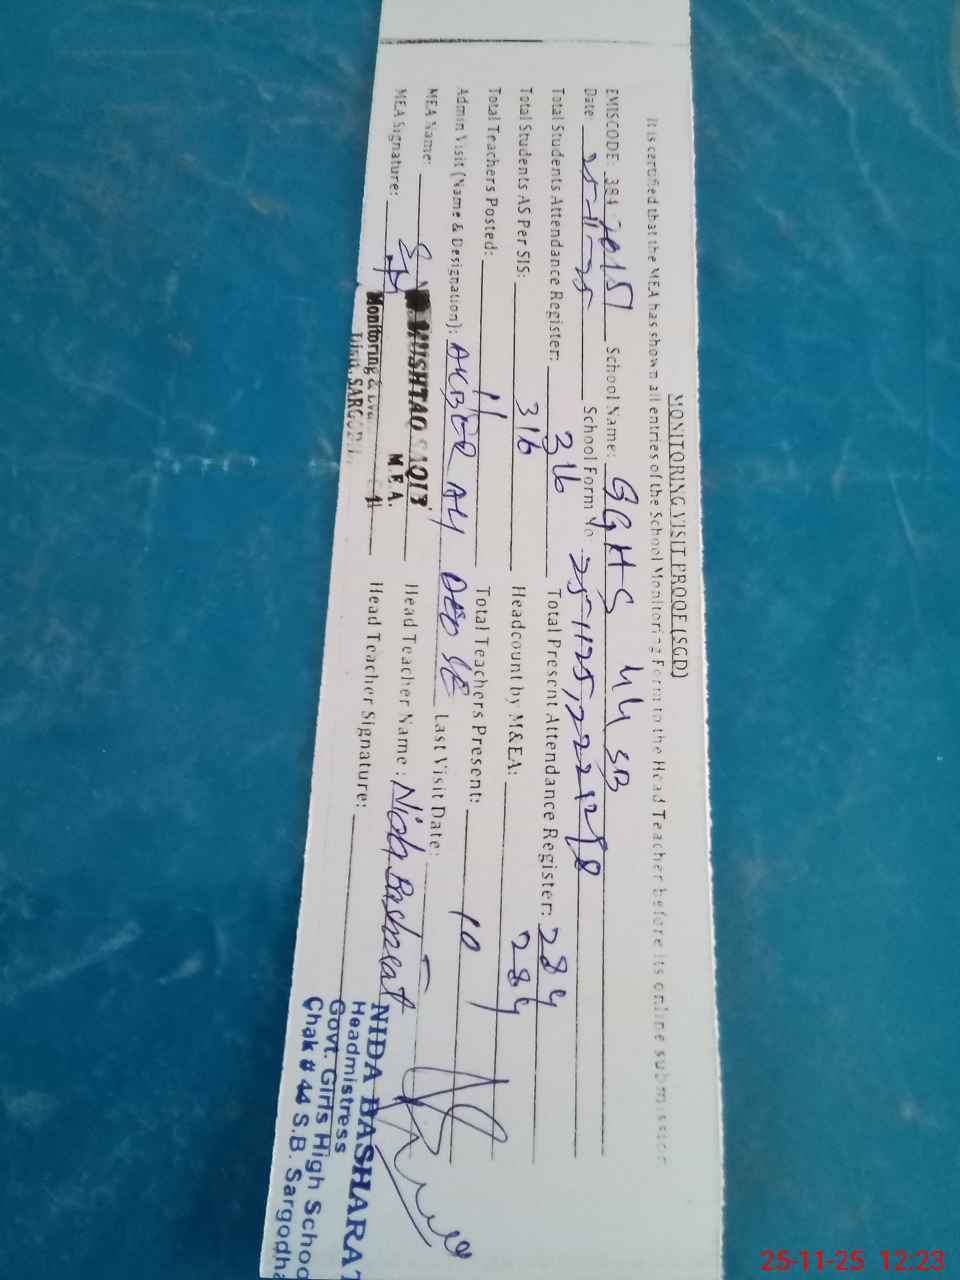 MONITORING VISIT PROOF (SGD)
It is certified that the MEA has shown all entries of the School Monitoring Form to the Head Teacher before its online submission
EMISCODE: 384 School Name: GGHS 44 SB
Date: 25-11-25 School Form No 25-1125,
Total Students Attendance Register: 316 Total Present Attendance Register: 284
Total Students AS Per SIS: 316 Headcount by M&EA: 284
Total Teachers Posted: 11 Total Teachers Present: 10
Admin Visit (Name & Designation): AKBER ALI DEO SE Last Visit Date:
MEA Name: MUSHTAQ SAQIB Head Teacher Name: Nida Basharat
M.E.A.
MEA Signature: Monitoring & Head Teacher Signature:
Distt. SARGODHA
NIDA BASHARAT
Headmistress
Govt. Girls High School
Chak # 44 S.B. Sargodha
25-11-25 12:23